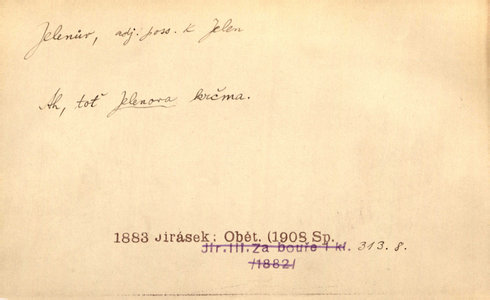 Jelenův, adj. poss. k Jelen
Ah, toť Jelenova krčma.
1883 Jirásek: Oběť. (1908 Sp.
Jir.III.Za bouře i kl. 313.8.
/1882/